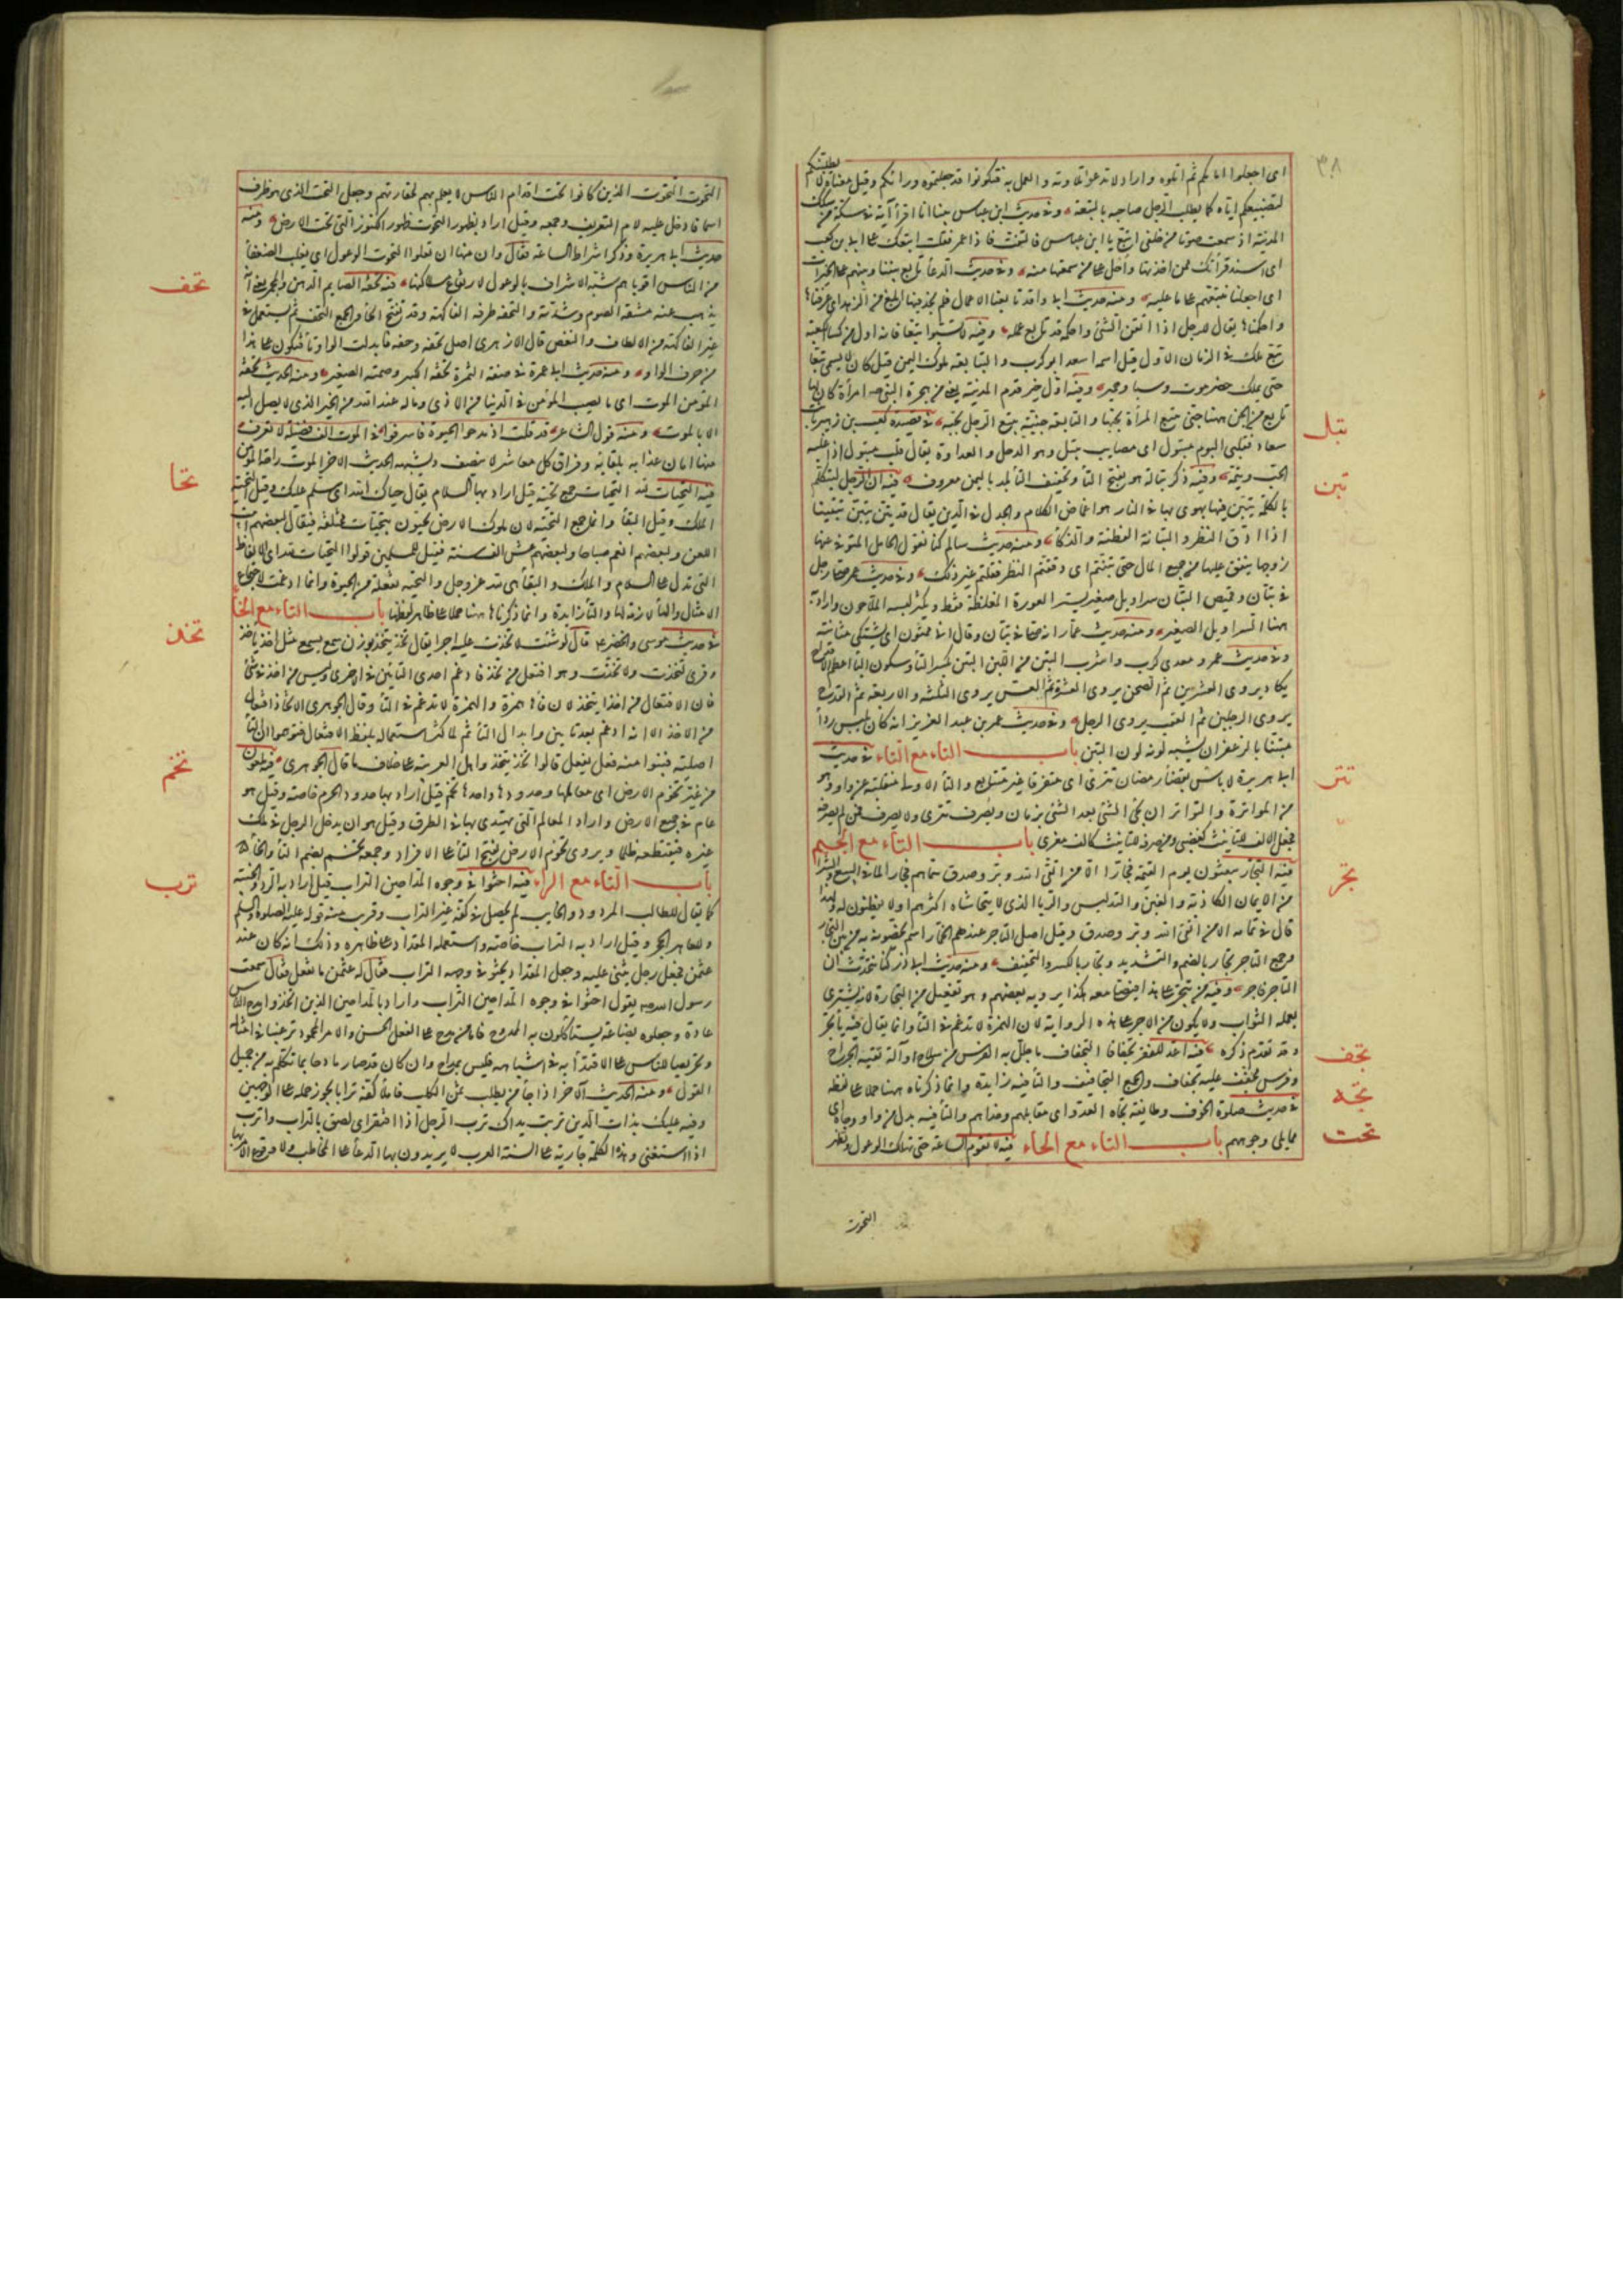 اى اجعلوا امامكم ثم اتلوه واراد لا تدعوا تلاوته والعمل به فتكونوا قد جعلتموه وراءكم وقيل معناه لا يطلبنكم
لتضييعكم اياه كما يطلب الرجل صاحبه بالتبعة وفى حديث ابن عباس بينا انا اقرأ آية فى سكة من سكك
المدينة اذ سمعت صوتا من خلفى اتبع يا ابن عباس فالتفت فاذا عمر فقلت اتبعك على ابى بن كعب
اى اسند قرأتك ممن اخذتها واحل على من سمعتها منه وفى حديث الدعا تابع بيننا وبينهم على الخيرات
اى اجعلنا نتبعهم على ما عليه ومنه حديث ابى واقد تابعنا الاعمال فلم نجد فيها ابلغ من الزهد اى عرفناها
واحكمناها يقال للرجل اذا اتقن الشئ واحكمه قد تابع عمله وفيه لا تسبوا تبعا فانه اول من كسا الكعبة
تبع ملك فى الزمان الاول قيل اسمه اسعد ابو كرب والتبابعة ملوك اليمن قيل كان لا يسمى تبعا
حتى يملك حضرموت وسبا وحمير وفيه اول خبر قدم المدينة يعنى من هجرة النبى صه امرأة كان لها
تابع من الجن ههنا جنى يتبع المرأة يحبها والتابعة جنية تتبع الرجل تحبه فى قصيدة كعب بن زهير بانت
تبل
سعاد فقلبى اليوم متبول اى مصاب بتبل وهو الذحل والعداوة يقال قلب متبول اذا غلبه
الحب وتيمه وفيه ذكر تبالة هو بفتح التا وتخفيف البا بلد باليمن معروف فيه ان الرجل ليتكلم
تبن
بالكلمة يتبن فيها يهوى بها فى النار هو اغماض الكلام والجدل فى الدين يقال قد تبن يتبن تتبينا
اذا ادق النظر والتبانة الفطنة والذكأ ومنه حديث سالم كنا نقول الحامل المتوفى عنها
زوجها ينفق عليها من جميع المال حتى تبنتم اى دققتم النظر فقلتم غير ذلك وفى حديث عمر صلى رجل
فى تبان وقميص التبان سراويل صغير يستر العورة المغلظة فقط ويكثر لبسه الملاحون واراد به
ههنا السراويل الصغير ومنه حديث عمار انه صلى فى تبان وقال انى ممثون اى يشتكى مثانته
وفى حديث عمرو معدى كرب واشرب التبن من اللبن التبن بكسر التا وسكون البا اعظم الاقداح
يكاد يروى العشرين ثم الصحن يروى العشرة ثم العس يروى الثلثه والاربعة ثم القدح
يروى الرجلين ثم القعب يروى الرجل وفى حديث عمر بن عبد العزيز انه كان يلبس رداأ
متبنا بالزعفران يشبه لونه لون التبن باب التاء مع التاء فى حديث
تتر
ابى هريرة لا باس بقضأ رمضان تترى اى متفرقا غير متتابع والتا الاولى منقلبة عن واو وهو
من المواترة والتواتر ان يجئ الشئ بعد الشئ بزمان ويصرف تترى ولا يصرف فمن لم يصرفه
جعل الالف للتانيث كغضبى ومن صرفه للتانيث كالف معزى باب التاء مع الجيم
تجر
فيه التجار يبعثون يوم القيمة فجارا الا من اتقى الله وبر وصدق سماهم فجارا لما فى البيع والشرا
من الايمان الكاذبة والغبن والتدليس والربا الذى لا يتحاشاه اكثرهم او لا يفطنون له ولهذا
قال فى تمامه الا من اتقى الله وبر وصدق وقيل اصل التاجر عندهم الخمار اسم يخصونه به من بين التجار
وجمع التاجر تجار بالضم والتشديد وتجار بالكسر والتخفيف ومنه حديث ابى ذر كنا نتحدث ان
التاجر فاجر وفيه من يتجر على هذا فيصلى معه هكذا يرويه بعضهم وهو تفعيل من التجارة لانه يشترى
بعمله الثواب ولا يكون من الاجر على هذه الرواية لان الهمزة لا تدغم فى التأ وانما يقال فيه يأتجر
تجف
وقد تقدم ذكره فيه اعد للفقر تجفافا التجفاف ما جلل به الفرس من سلاح وآلة تقيه الجراح
وفرس مجفف عليه تجفاف والجمع التجافيف والتأ فيه زايدة وانما ذكرناه ههنا حملا على لفظه
تجه
فى حديث صلوة الخوف وطايفة تجاه العدو اى مقابلهم وحذاهم والتأ فيه بدل من واو وجاه اى
تحت
مما يلى وجوههم باب التاء مع الحاء فيه لا تقوم الساعة حتى تهلك الوعول وتظهر
التحوت
التحوت التحوت الذين كانوا تحت اقدام الناس لا يعلم بهم لحقارتهم وجعل التحت الذى هو ظرف
اسما فادخل عليه لام التعريف وجمعه وقيل اراد بظهور التحوت ظهور الكنوز التى تحت الارض ومنه
حديث ابى هريرة وذكر اشراط الساعة فقال وان منها ان تعلوا التحوت الوعول اى يغلب الضعفأ
تحف
من الناس اقوياهم شبه الاشراف بالوعول لارتفاع مساكنها فيه تحفة الصايم الدهن والمجمر يعنى انه
يذهب عنه مشقة الصوم وشدته والتحفة طرفة الفاكهة وقد تفتح الحأ والجمع التحف ثم يستعمل فى
غير الفاكهة من الالطاف والنغص قال الازهرى اصل تحفة وحفة فابدلت الواو تأ فيكون على هذا
من حرف الواو ومنه حديث ابى عمرة فى صفة التمرة تحفة الكبير وصمتة الصغير ومنه الحديث تحفة
المؤمن الموت اى ما يصيب المؤمن فى الدنيا من الاذى وماله عند الله من الخير الذى لا يصل اليه
الا بالموت ومنه قول الشاعر قد قلت اذ مدحوا الحيوة فاسرفوا فى الموت الف فضيلة لا تعرف
منها امان عذابه بلقائه وفراق كل معاشر لا ينصف ويشبهه الحديث الاخر الموت راحة المؤمن
تحا
فيه التحيات لله التحيات جمع تحية قيل اراد بها السلام يقال حياك الله اى سلم عليك وقيل التحية
الملك وقيل البقأ وانما جمع التحية لان ملوك الارض يحيون بتحيات مختلفة فيقال لبعضهم ابيت
اللعن ولبعضهم انعم صباحا ولبعضهم عش الف سنة فقيل للمسلمين قولوا التحيات لله اى الالفاظ
التى تدل على السلام والملك والبقأ هى لله عز وجل والتحية تفعلة من الحيوة وانما ادغمت لاجتماع
الامثال والهأ لازمة لها والتأ زايدة وانما ذكرناها ههنا حملا على ظاهر لفظها باب التاء مع الخاء
تخذ
فى حديث موسى والخضر عا قال لو شئت لاتخذت عليه اجرا يقال تخذ يتخذ بوزن سمع يسمع مثل اخذ ياخذ
وقرئ لتخذت ولاتخذت وهو افتعل من تخذ فادغم احدى التأين فى الاخرى وليس من اخذ فى شئ
فان الافتعال من اخذ ايتخذ لان فاها همزة والهمزة لا تدغم فى التأ وقال الجوهرى الاتخاذ افتعال
من الاخذ الا انه ادغم بعد تليين وابدال التأ ثم لما كثر استعماله بلفظ الافتعال فتوهموا ان التأ
تخم
اصلية فبنوا منه فعل يفعل قالوا تخذ يتخذ واهل العربية على خلاف ما قال الجوهرى فيه ملعون
من غير تخوم الارض اى معالمها وحدودها واحدها تخم قيل اراد بها حدود الحرم خاصة وقيل هو
عام فى جميع الارض واراد المعالم التى يهتدى بها فى الطرق وقيل هو ان يدخل الرجل فى ملك
غيره فيقتطعه ظلما ويروى تخوم الارض بفتح التا على الافراد وجمعه تخم بضم التا والخأ
ترب
باب التاء مع الراء فيه احثوا فى وجوه المداحين التراب قيل اراد به الرد والخيبة
كما يقال للطالب المردود والخايب لم يحصل فى كفه غير التراب وقريب منه قوله عليه الصلوة والسلم
وللعاهر الحجر وقيل اراد به التراب خاصة واستعمله المقداد على ظاهره وذلك انه كان عند
عثمن فجعل رجل يثنى عليه وجعل المقداد يحثو فى وجهه التراب فقال له عثمن ما تفعل فقال سمعت
رسول الله صه يقول احثوا فى وجوه المداحين التراب واراد بالمداحين الذين اتخذوا مدح الناس
عادة وجعلوه بضاعة يستاكلون به الممدوح فاما من مدح على الفعل الحسن والامر المحمود ترغيبا فى امثاله
وتحريصا للناس على الاقتدأ به فى اشباهه فليس بمداح وان كان قد صار مادحا بما تكلم به من جميل
القول ومنه الحديث الاخر اذا جأ من يطلب ثمن الكلب فاملأ كفه ترابا يجوز حمله على الوجهين
وفيه عليك بذات الدين تربت يداك ترب الرجل اذا افتقر اى لصق بالتراب واترب
اذا استغنى وهذه الكلمة جارية على السنة العرب لا يريدون بها الدعأ على المخاطب ولا وقوع الامر بها